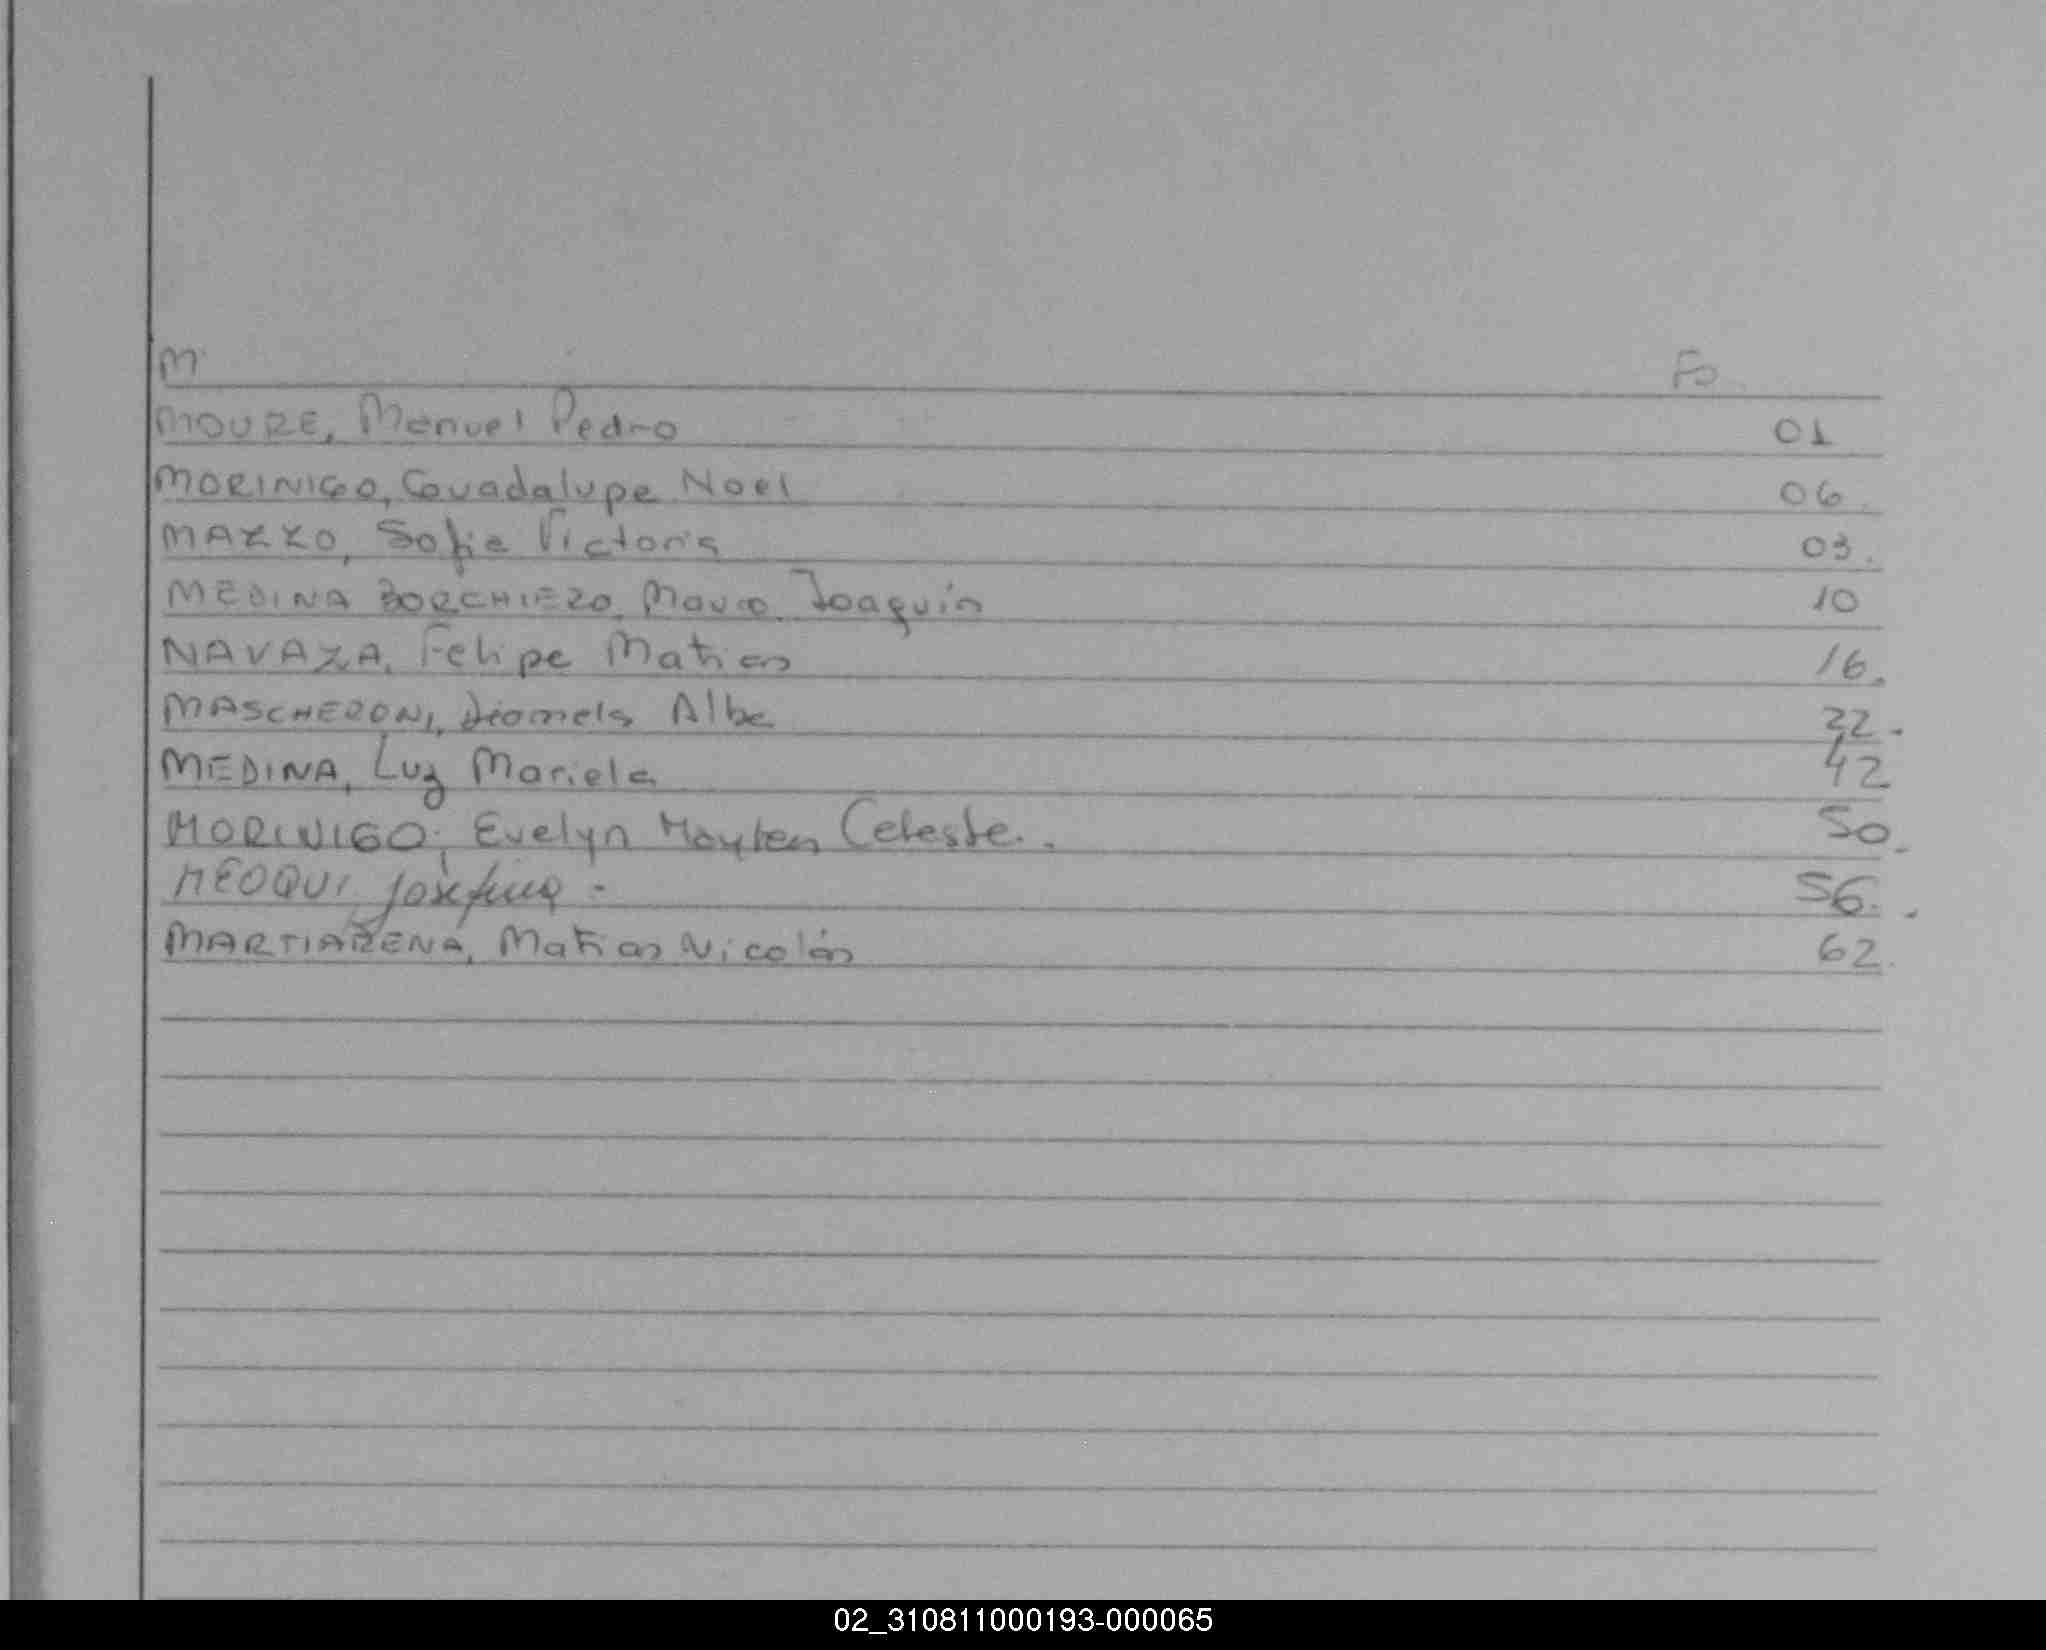 M Fo
MOURE, Manuel Pedro 01
MORINIGO, Guadalupe Noel 06.
MAZZO, Sofia Victoria 03.
MEDINA BORCHIERO, Mauro Joaquín 10
NAVAZA, Felipe Matias 16.
MASCHERONI, Diomela Alba 22.
MEDINA, Luz Mariela 42
MORINIGO, Evelyn Mayten Celeste.. 50.
MEOQUI, Josefina - 56..
MARTIARENA, Matias Nicolás 62.
02_310811000193-000065